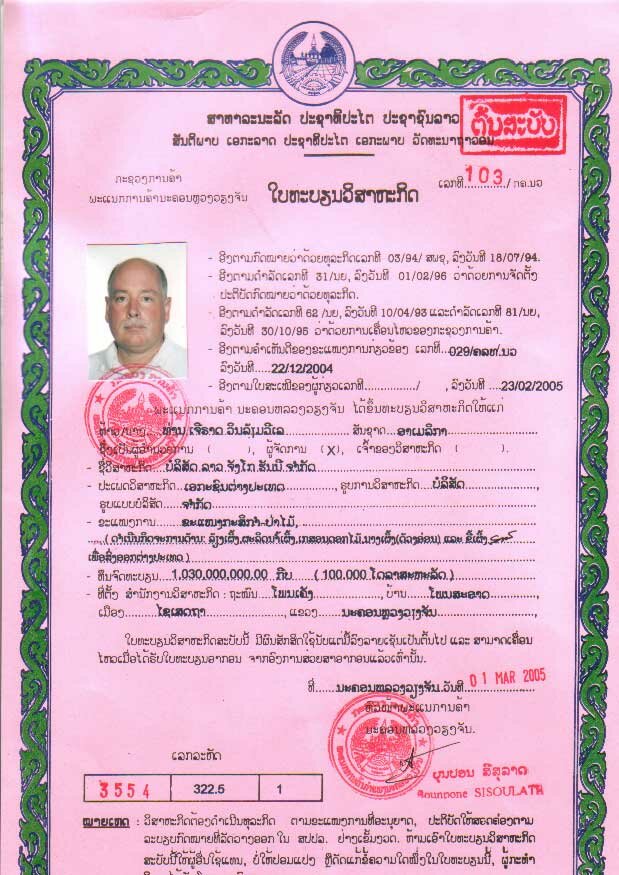 ສາທາລະນະລັດ ປະຊາທິປະໄຕ ປະຊາຊົນລາວ
ສັນຕິພາບ ເອກະລາດ ປະຊາທິປະໄຕ ເອກະພາບ ວັດທະນາຖາວອນ
ຕົ້ນສະບັບ
ກະຊວງການຄ້າ
ພະແນກການຄ້ານະຄອນຫຼວງວຽງຈັນ
ໃບທະບຽນວິສາຫະກິດ
ເລກທີ 103 / ກຄ.ນວ
- ອີງຕາມກົດໝາຍວ່າດ້ວຍທຸລະກິດເລກທີ 03/94/ ສພຊ, ລົງວັນທີ 18/07/94.
- ອີງຕາມດຳລັດເລກທີ 31/ນຍ, ລົງວັນທີ 01/02/96 ວ່າດ້ວຍການຈັດຕັ້ງ
ປະຕິບັດກົດໝາຍວ່າດ້ວຍທຸລະກິດ.
- ອີງຕາມດຳລັດເລກທີ 62 /ນຍ, ລົງວັນທີ 10/04/93 ແລະດຳລັດເລກທີ 81/ນຍ,
ລົງວັນທີ 30/10/95 ວ່າດ້ວຍການເຄື່ອນໄຫວຂອງກະຊວງການຄ້າ.
- ອີງຕາມຄຳເຫັນດີຂອງຂະແໜງການກ່ຽວຂ້ອງ ເລກທີ 029/ຄລທ.ນວ
ລົງວັນທີ 22/12/2004
- ອີງຕາມໃບສະເໜີຂອງຜູ້ກ່ຽວເລກທີ............../ , ລົງວັນທີ ....23/02/2005
ພະແນກການຄ້າ ນະຄອນຫລວງວຽງຈັນ ໄດ້ຂຶ້ນທະບຽນວິສາຫະກິດໃຫ້ແກ່
ທ້າວ/ນາງ ທ່ານ ເຈີຣາດ ວິນລ໌ຽມວິເລ ສັນຊາດ ອາເມລິກາ
ຊຶ່ງເປັນຜູ້ອຳນວຍການ ( ), ຜູ້ຈັດການ (X), ເຈົ້າຂອງວິສາຫະກິດ ( ).
- ຊື່ວິສາຫະກິດ ບໍລິສັດ ລາວ ຈັງໂກ ຮັນນີ ຈຳກັດ
- ປະເພດວິສາຫະກິດ ເອກະຊົນຕ່າງປະເທດ , ຮູບການວິສາຫະກິດ ບໍລິສັດ ,
ຮູບແບບບໍລິສັດ ຈຳກັດ
- ຂະແໜງການ ຂະແໜງກະສິກຳ-ປ່າໄມ້,
( ດຳເນີນກິດຈະການດ້ານ: ລ້ຽງເຜິ້ງ,ຜະລິດນ້ຳເຜິ້ງ,ເກສອນດອກໄມ້,ນາງເຜິ້ງ(ຕົວອ່ອນ) ແລະ ຂີ້ເຜິ້ງ
ເພື່ອສົ່ງອອກຕ່າງປະເທດ )
- ທຶນຈົດທະບຽນ 1,030,000,000.00 ກີບ ( 100.000 ໂດລາສະຫະລັດ )
- ທີ່ຕັ້ງ ສຳນັກງານວິສາຫະກິດ : ຖະໜົນ ໂພນເຄັງ , ບ້ານ ໂພນສະອາດ ,
ເມືອງ ໄຊເສດຖາ , ແຂວງ ນະຄອນຫຼວງວຽງຈັນ ,
ໃບທະບຽນວິສາຫະກິດສະບັບນີ້ ມີຜົນສັກສິດໃຊ້ນັບແຕ່ມື້ລົງລາຍເຊັນເປັນຕົ້ນໄປ ແລະ ສາມາດເຄື່ອນ
ໄຫວເມື່ອໄດ້ຮັບໃບທະບຽນອາກອນ ຈາກອົງການສ່ວຍສາອາກອນແລ້ວເທົ່ານັ້ນ.
ທີ່ ນະຄອນຫລວງວຽງຈັນ ວັນທີ 01 MAR 2005
ຫົວໜ້າພະແນກການຄ້າ
ນະຄອນຫລວງວຽງຈັນ.
ເລກລະຫັດ
3554 322.5 1
ບຸນປອນ ສີສຸລາດ
Bounpone SISOULATH
ໝາຍເຫດ : ວິສາຫະກິດຕ້ອງດຳເນີນທຸລະກິດ ຕາມຂະແໜງການທີ່ອະນຸຍາດ, ປະຕິບັດໃຫ້ສອດຄ່ອງຕາມ
ລະບຽບກົດໝາຍທີ່ລັດວາງອອກ ໃນ ສປປລ. ຢ່າງເຂັ້ມງວດ. ຫ້າມເອົາໃບທະບຽນວິສາຫະກິດ
ສະບັບນີ້ໃຫ້ຜູ້ອື່ນໃຊ້ແທນ, ບໍ່ໃຫ້ປອມແປງ ຫຼືດັດແກ້ຂໍ້ຄວາມໃດໜຶ່ງໃນໃບທະບຽນນີ້, ຜູ້ກະທຳ